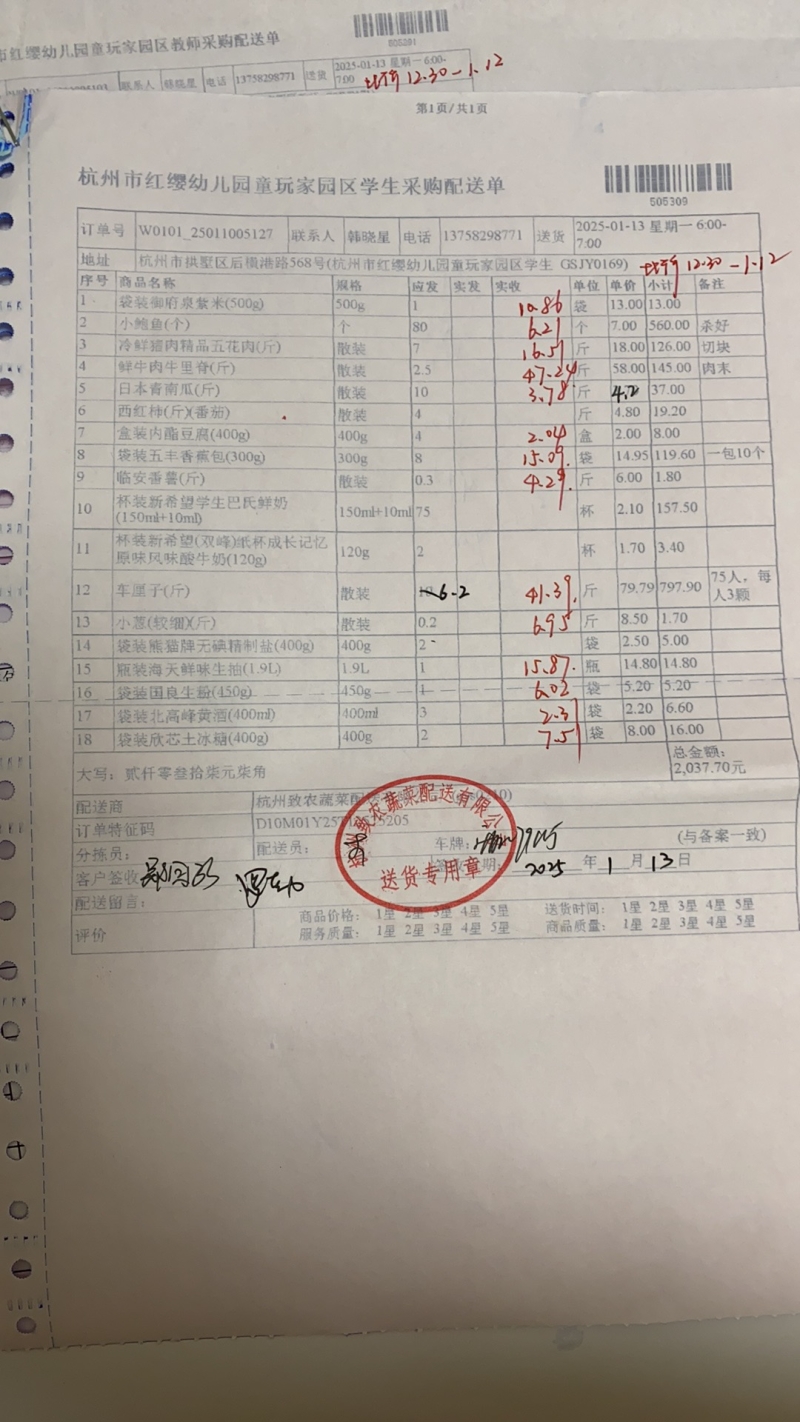 市红缨幼儿园童玩家园区教师采购配送单
505291
联系人 韩晓星 电话 13758298771 送货 2025-01-13 星期一 6:00-7:00 12.30-1.12
第1页/共1页
杭州市红缨幼儿园童玩家园区学生采购配送单
505309
订单号 W0101_25011005127 联系人 韩晓星 电话 13758298771 送货 2025-01-13 星期一 6:00-7:00
地址 杭州市拱墅区后横港路568号(杭州市红缨幼儿园童玩家园区学生 GSJY0169) 12.30-1.12
序号 商品名称 规格 应发 实发 实收 单位 单价 小计 备注
1 袋装御府泉紫米(500g) 500g 1 10.86 袋 13.00 13.00
2 小鲍鱼(个) 个 80 6.21 个 7.00 560.00 杀好
3 冷鲜猪肉精品五花肉(斤) 散装 7 16.51 斤 18.00 126.00 切块
4 鲜牛肉牛里脊(斤) 散装 2.5 47.24 斤 58.00 145.00 肉末
5 日本青南瓜(斤) 散装 10 3.78 斤 37.00
6 西红柿(斤)(番茄) 散装 4 斤 4.80 19.20
7 盒装内酯豆腐(400g) 400g 4 2.04 盒 2.00 8.00
8 袋装五丰香蕉包(300g) 300g 8 15.09 袋 14.95 119.60 一包10个
9 临安番薯(斤) 散装 0.3 4.29 斤 6.00 1.80
10 杯装新希望学生巴氏鲜奶(150ml+10ml) 150ml+10ml 75 杯 2.10 157.50
11 杯装新希望(双峰)纸杯成长记忆原味风味酸牛奶(120g) 120g 2 杯 1.70 3.40
12 车厘子(斤) 散装 6.2 41.39 斤 79.79 797.90 75人，每人3颗
13 小葱(较细)(斤) 散装 0.2 6.95 斤 8.50 1.70
14 袋装熊猫牌无碘精制盐(400g) 400g 2 袋 2.50 5.00
15 瓶装海天鲜味生抽(1.9L) 1.9L 1 15.87 瓶 14.80 14.80
16 袋装国良生粉(450g) 450g 1 6.02 袋 5.20 5.20
17 袋装北高峰黄酒(400ml) 400ml 3 2.31 袋 2.20 6.60
18 袋装欣芯土冰糖(400g) 400g 2 7.51 袋 8.00 16.00
大写：贰仟零叁拾柒元柒角 总金额：2,037.70元
配送商 杭州致农蔬菜配送有限公司
订单特征码 D10M01Y25
分拣员： 配送员： 车牌： (与备案一致)
客户签收 2025 年 1 月 13 日
送货专用章
配送留言：
评价 商品价格： 1星 2星 3星 4星 5星 送货时间： 1星 2星 3星 4星 5星
服务质量： 1星 2星 3星 4星 5星 商品质量： 1星 2星 3星 4星 5星